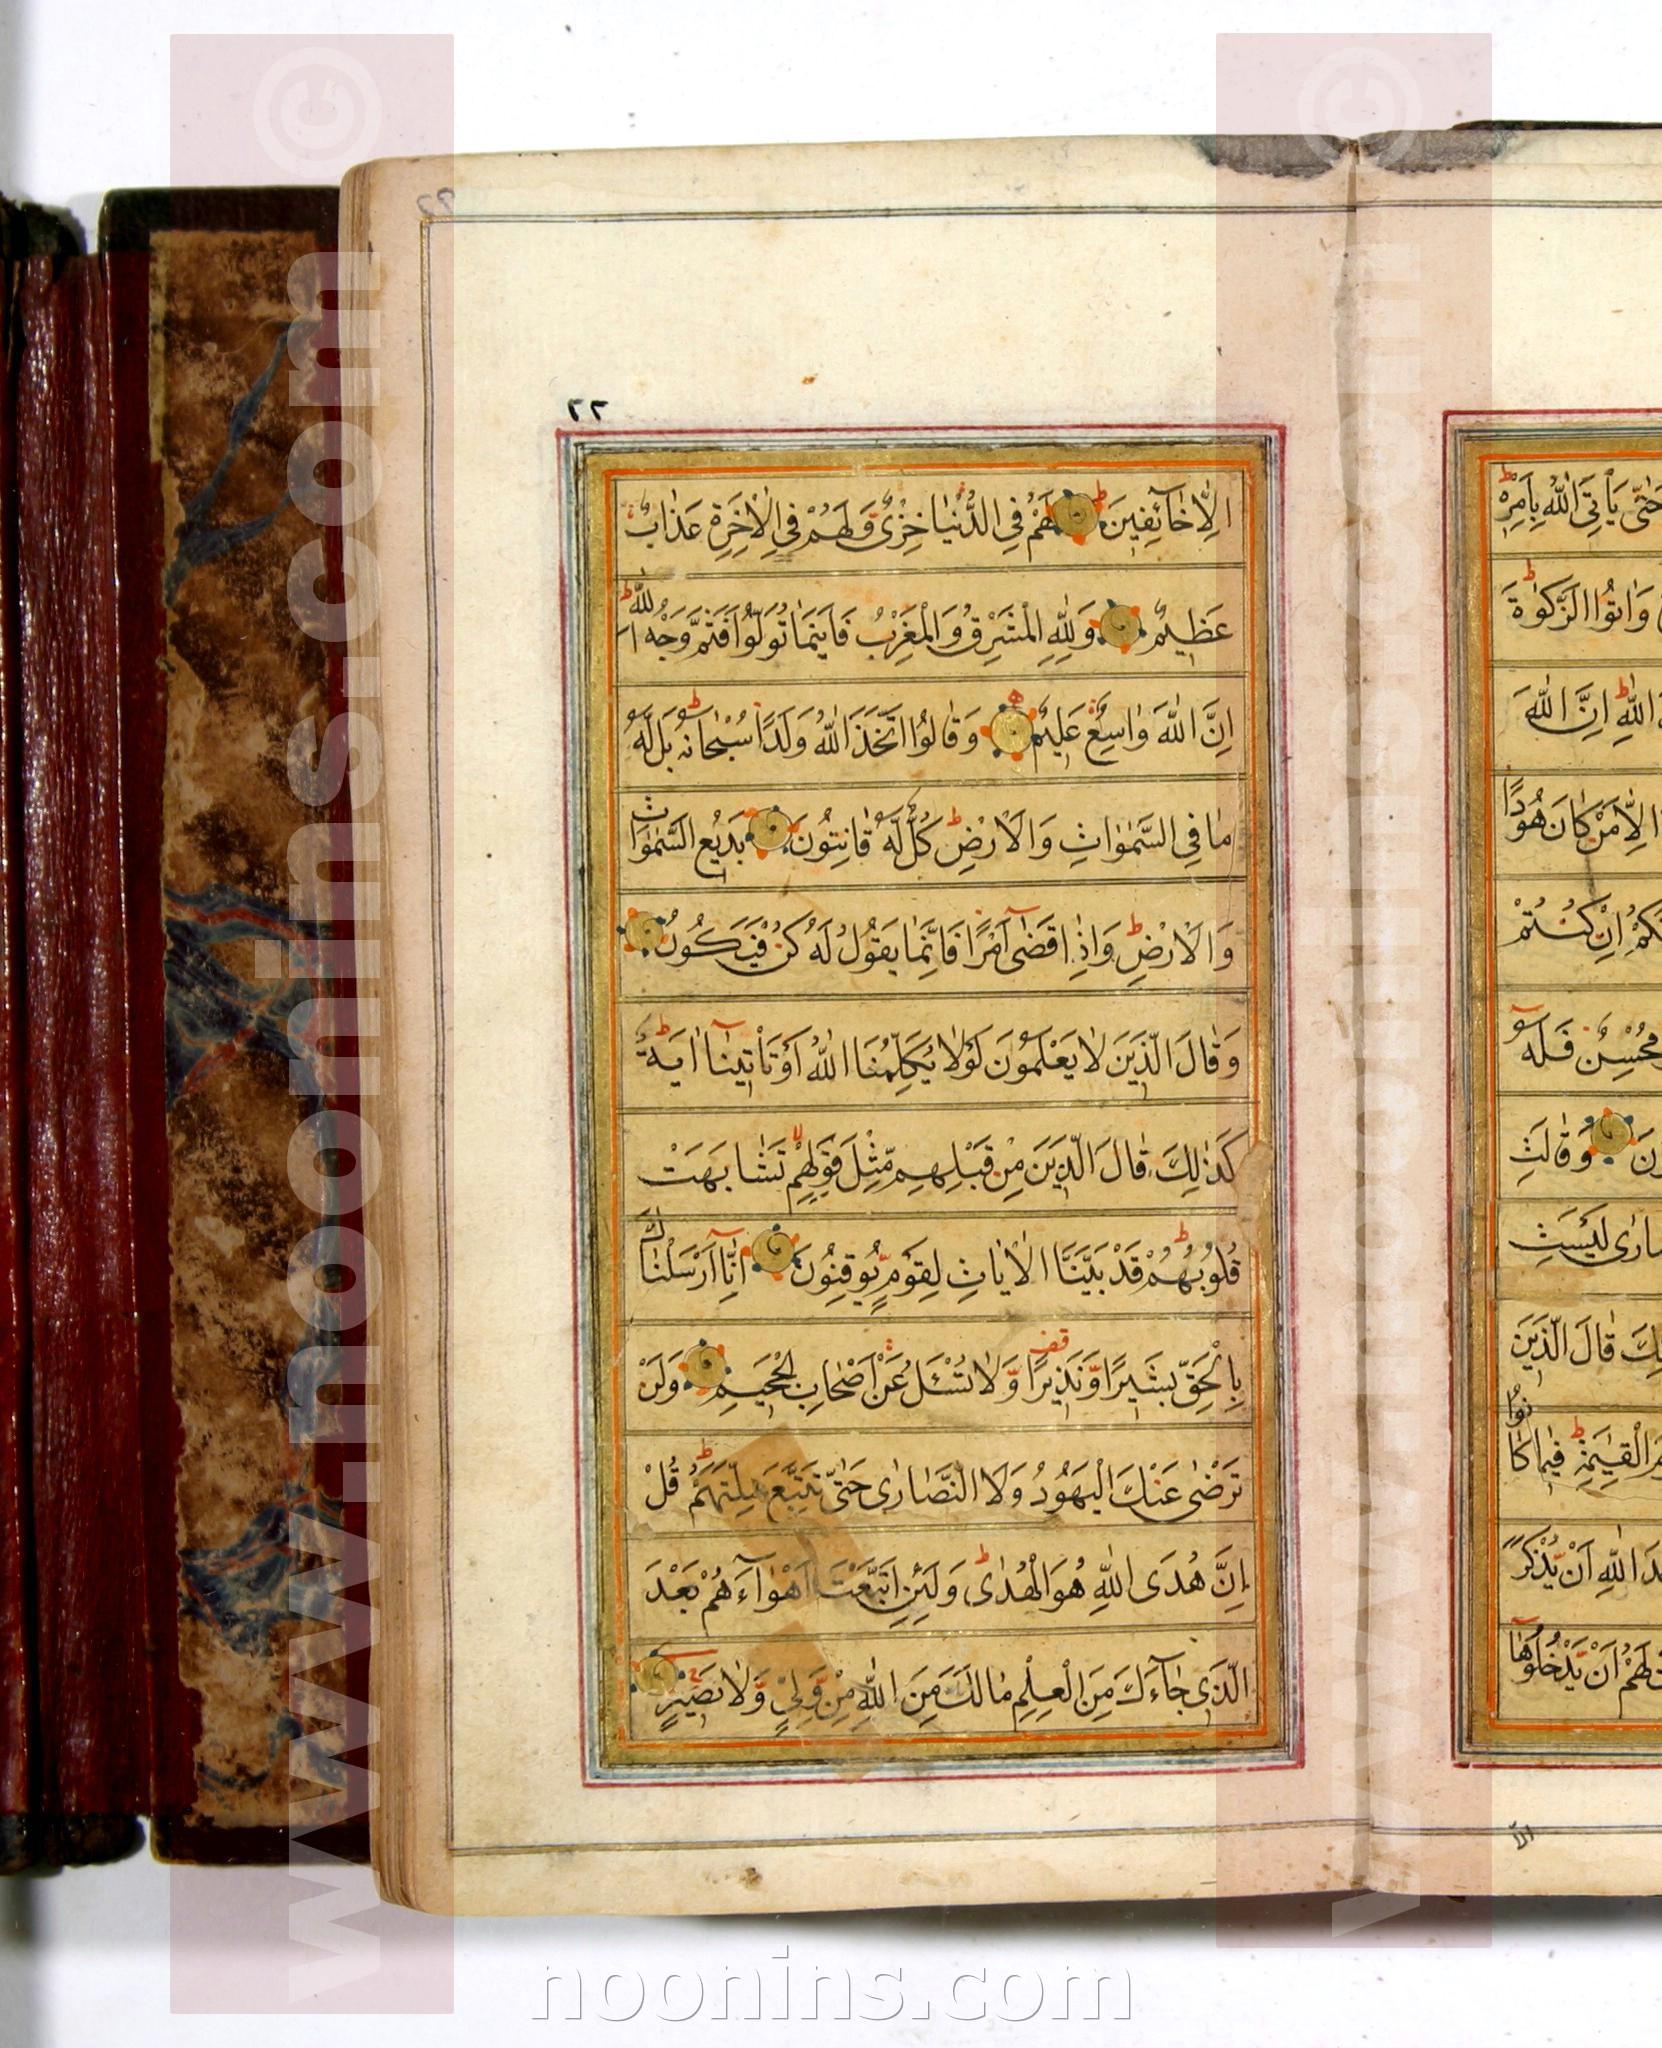 ٢٢
اِلّٰا خٰٓائِفِينَ لَهُمْ فِي الدُّنْيٰا خِزْیٌ وَّ لَهُمْ فِي الْاٰخِرَةِ عَذٰابٌ
عَظِيمٌ وَ لِلّٰهِ الْمَشْرِقُ وَ الْمَغْرِبُ فَاَيْنَمٰا تُوَلُّوا فَثَمَّ وَجْهُ اللّٰهِ
اِنَّ اللّٰهَ وٰاسِعٌ عَلِيمٌ وَ قٰالُوا اتَّخَذَ اللّٰهُ وَلَدًا سُبْحٰانَهُ بَلْ لَهُ
مٰا فِي السَّمٰوٰاتِ وَ الْاَرْضِ كُلٌّ لَهُ قٰانِتُونَ بَدِيعُ السَّمٰوٰاتِ
وَ الْاَرْضِ وَ اِذٰا قَضٰٓى اَمْرًا فَاِنَّمٰا يَقُولُ لَهُ كُنْ فَيَكُونُ
وَ قٰالَ الَّذِينَ لٰا يَعْلَمُونَ لَوْلٰا يُكَلِّمُنَا اللّٰهُ اَوْ تَأْتِينٰٓا اٰيَةٌ
كَذٰلِكَ قٰالَ الَّذِينَ مِنْ قَبْلِهِمْ مِّثْلَ قَوْلِهِمْ تَشٰابَهَتْ
قُلُوبُهُمْ قَدْ بَيَّنَّا الْاٰيٰاتِ لِقَوْمٍ يُّوقِنُونَ اِنّٰٓا اَرْسَلْنٰاكَ
بِالْحَقِّ بَشِيرًا وَّ نَذِيرًا قف وَّ لٰا تُسْئَلُ عَنْ اَصْحٰابِ الْجَحِيمِ وَ لَنْ
تَرْضٰى عَنْكَ الْيَهُودُ وَ لَا النَّصٰارٰى حَتّٰى تَتَّبِعَ مِلَّتَهُمْ قُلْ
اِنَّ هُدَى اللّٰهِ هُوَ الْهُدٰى وَ لَئِنِ اتَّبَعْتَ اَهْوٰٓاءَهُمْ بَعْدَ
الَّذِي جٰٓاءَكَ مِنَ الْعِلْمِ مٰا لَكَ مِنَ اللّٰهِ مِنْ وَّلِيٍّ وَّ لٰا نَصِيرٍ
حَتّٰى يَأْتِيَ اللّٰهُ بِاَمْرِهِ
وَ اٰتُوا الزَّكٰوةَ
اللّٰهِ اِنَّ اللّٰهَ
اِلّٰا مَنْ كٰانَ هُودًا
اِنْ كُنْتُمْ
مُحْسِنٌ فَلَهُ
وَ قٰالَتِ
لَيْسَتِ
قٰالَ الَّذِينَ
الْقِيٰمَةِ فِيمٰا كٰانُوا
اللّٰهِ اَنْ يُّذْكَرَ
لَهُمْ اَنْ يَّدْخُلُوهٰٓا
الّا
www.noonins.com ©
www.noonins.com ©
noonins.com